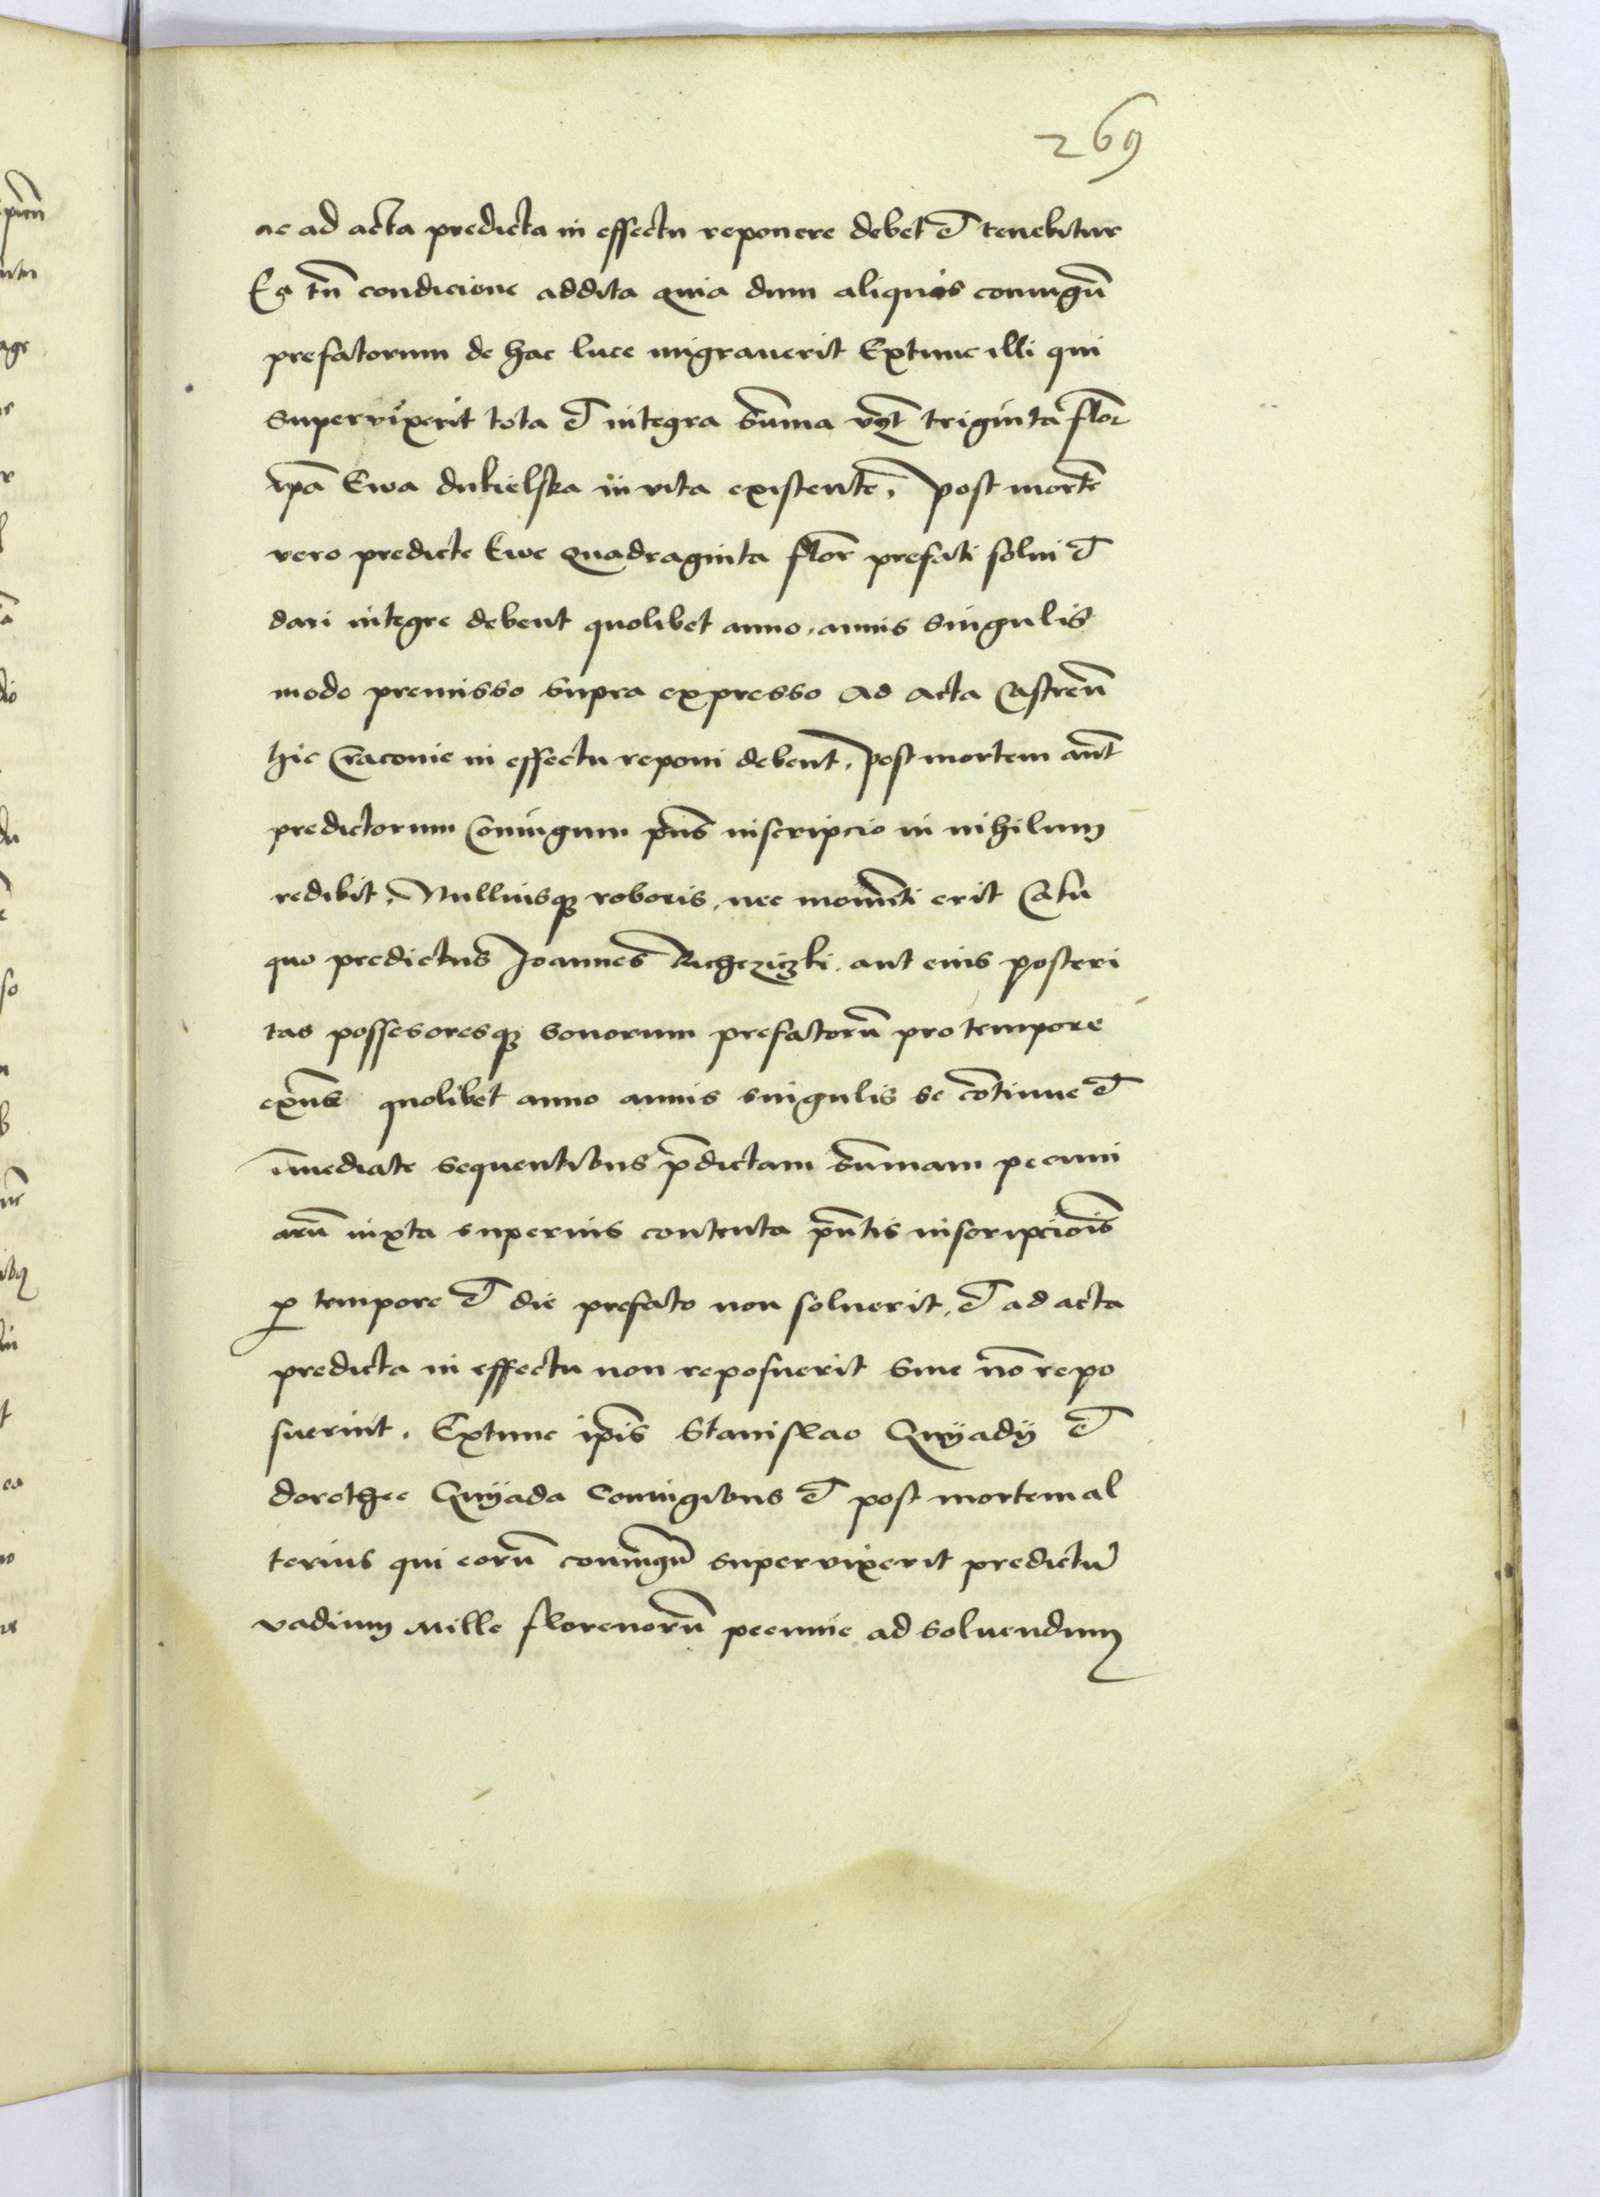 269
ac ad acta predicta in effectu reponere debet et tenebitur
Ea tn̄ condicione addita quia dum aliquis coniugū
prefatorum de hac luce migrauerit Extunc illi qui
supervixerit tota et integra sūma vȝt triginta flor̄
ip̄a Ewa dukielska in vita existente, post mortē
vero predicte Ewe quadraginta flor̄ prefati solui et
dari integre debent quolibet anno, annis singulis
modo premisso supra expresso ad acta Castren̄
hic Cracouie in effectu reponi debent, post mortem aūt
predictorum Coniugum pn̄s inscripcio in nihilum
redibit, Nulliusqȝ roboris, nec momēti erit Casu
quo predictus Joannes aut eius posteri
tas possesoresqȝ bonorum prefatorū pro tempore
exn̄s quolibet anno annis singulis se cōtinue et
īmediate sequentibus p̄dictam sūmam pecuni
arū iuxta superius contenta pn̄tis inscripciōis
ꝓ tempore et die prefato non soluerit, et ad acta
predicta in effectu non reposuerit siue nō repo
suerint, Extunc ip̄is Stanislao Quÿadÿ et
dorothee Quÿada Coniugibus et post mortem al
terius qui eorū coniugū supervixerit predictū
vadium Mille florenorū pecunie ad soluendum